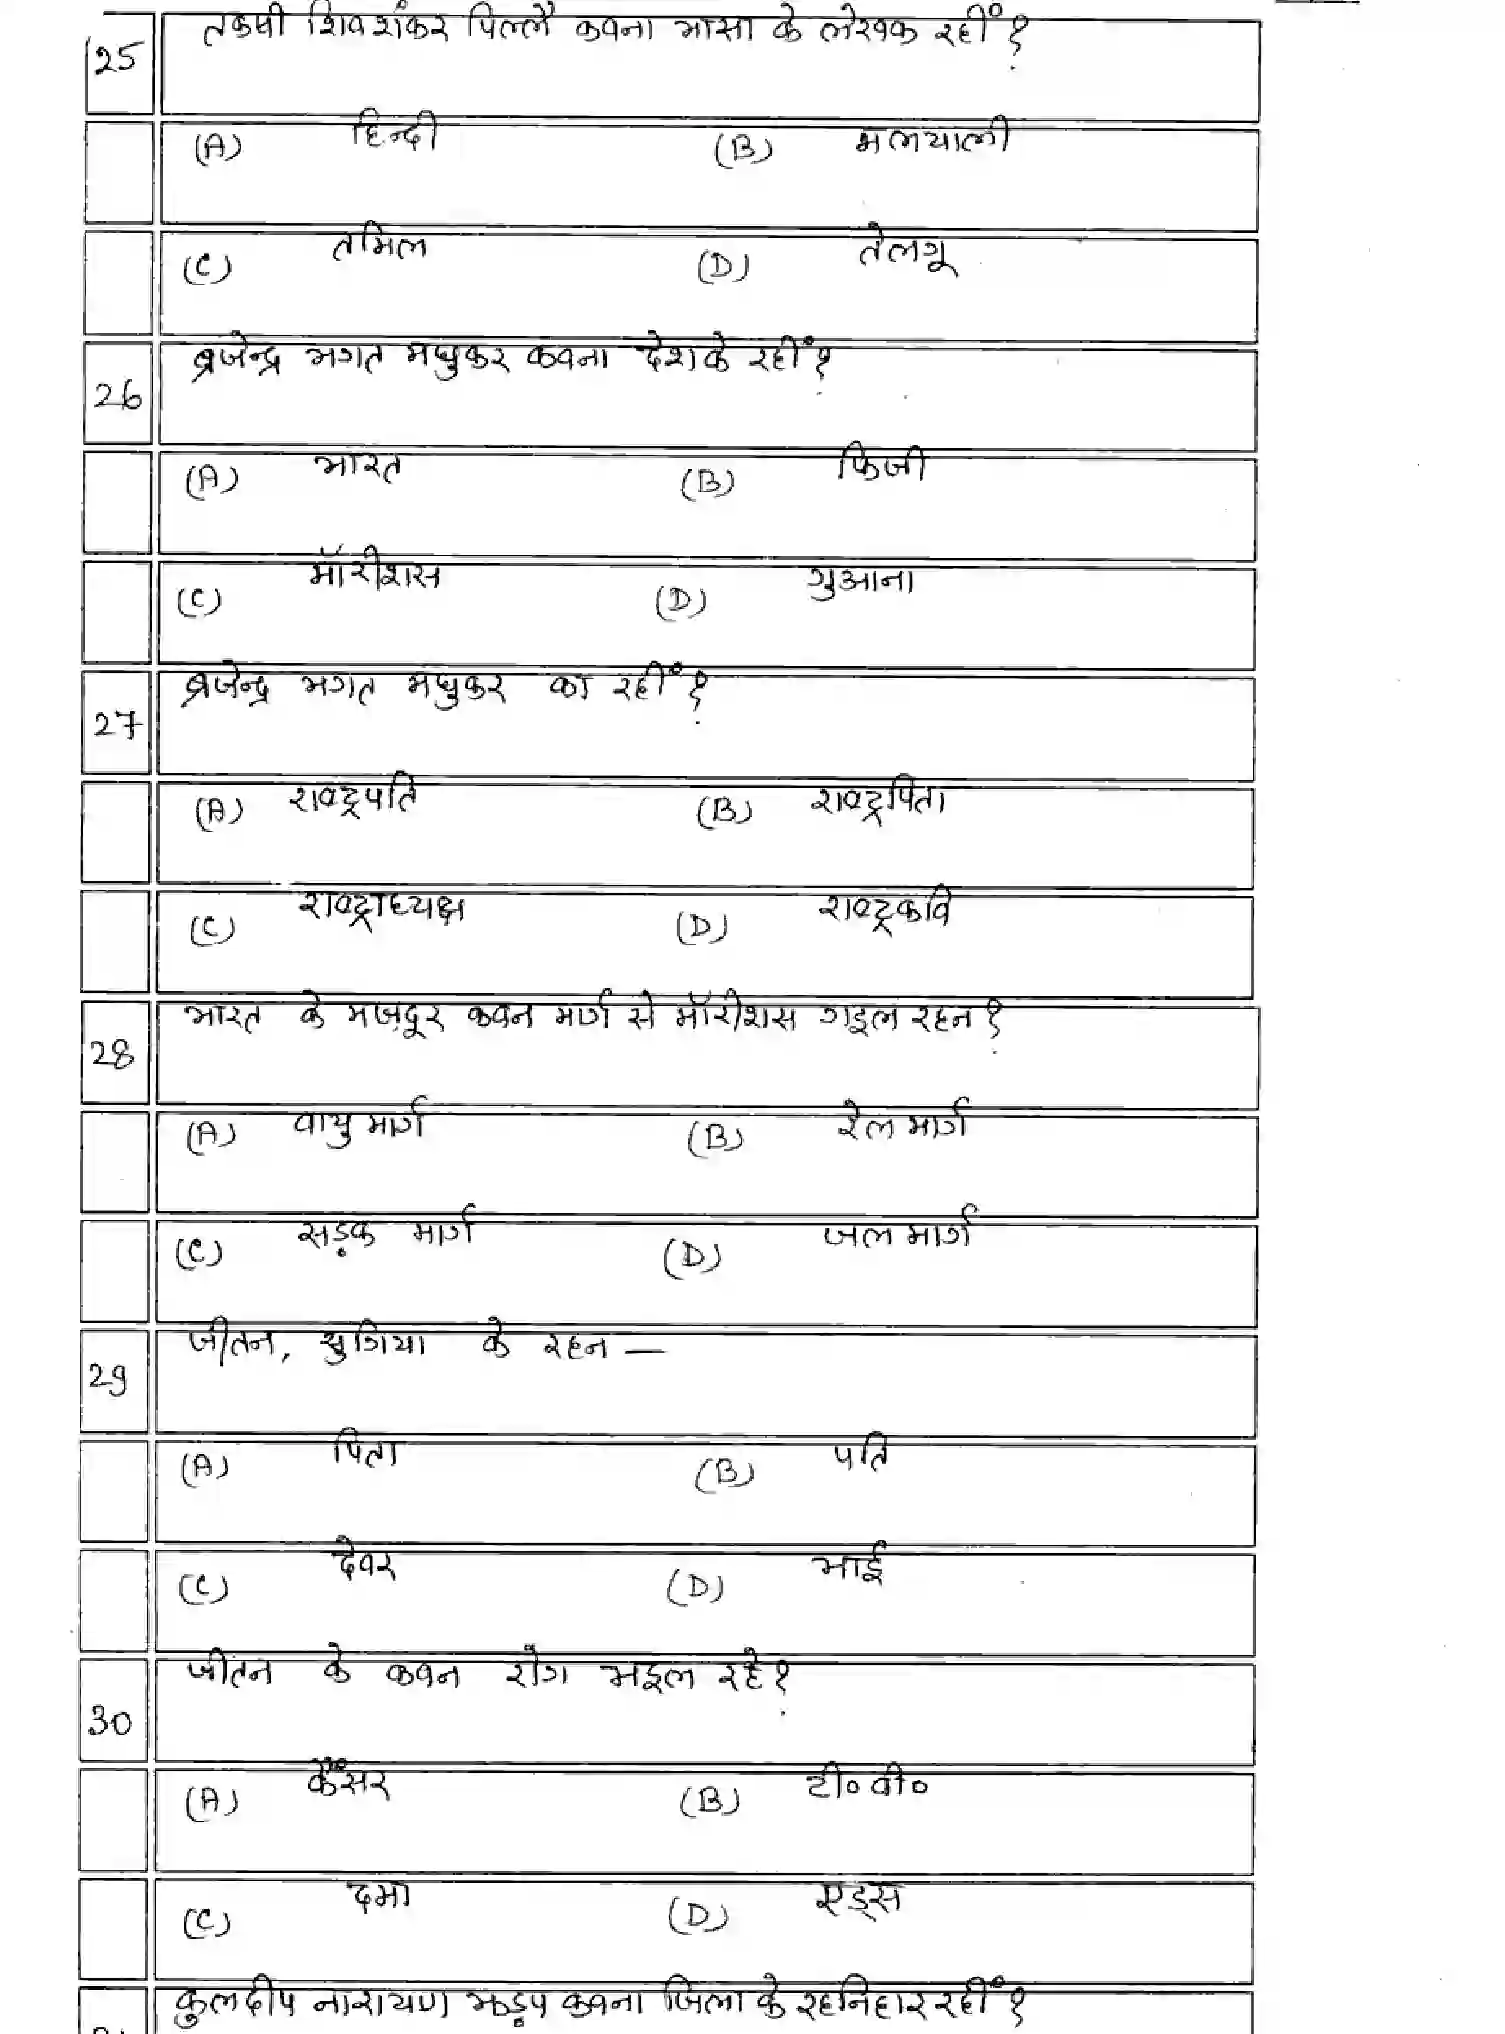 25 तकषी शिवशंकर पिल्लै कवना भासा के लेखक रहीं?
(A) हिन्दी (B) मलयाली
(C) तमिल (D) तेलगू
26 ब्रजेन्द्र भगत मधुकर कवना देश के रहीं?
(A) भारत (B) फिजी
(C) मॉरीशस (D) गुआना
27 ब्रजेन्द्र भगत मधुकर का रहीं?
(A) राष्ट्रपति (B) राष्ट्रपिता
(C) राष्ट्राध्यक्ष (D) राष्ट्रकवि
28 भारत के मज़दूर कवन मार्ग से मॉरीशस गइल रहन?
(A) वायु मार्ग (B) रेल मार्ग
(C) सड़क मार्ग (D) जल मार्ग
29 जीतन, सुगिया के रहन —
(A) पिता (B) पति
(C) देवर (D) भाई
30 जीतन के कवन रोग भइल रहे?
(A) कैंसर (B) टी० बी०
(C) दमा (D) एड्स
कुलदीप नारायण झड़प कवना जिला के रहनिहार रहीं?